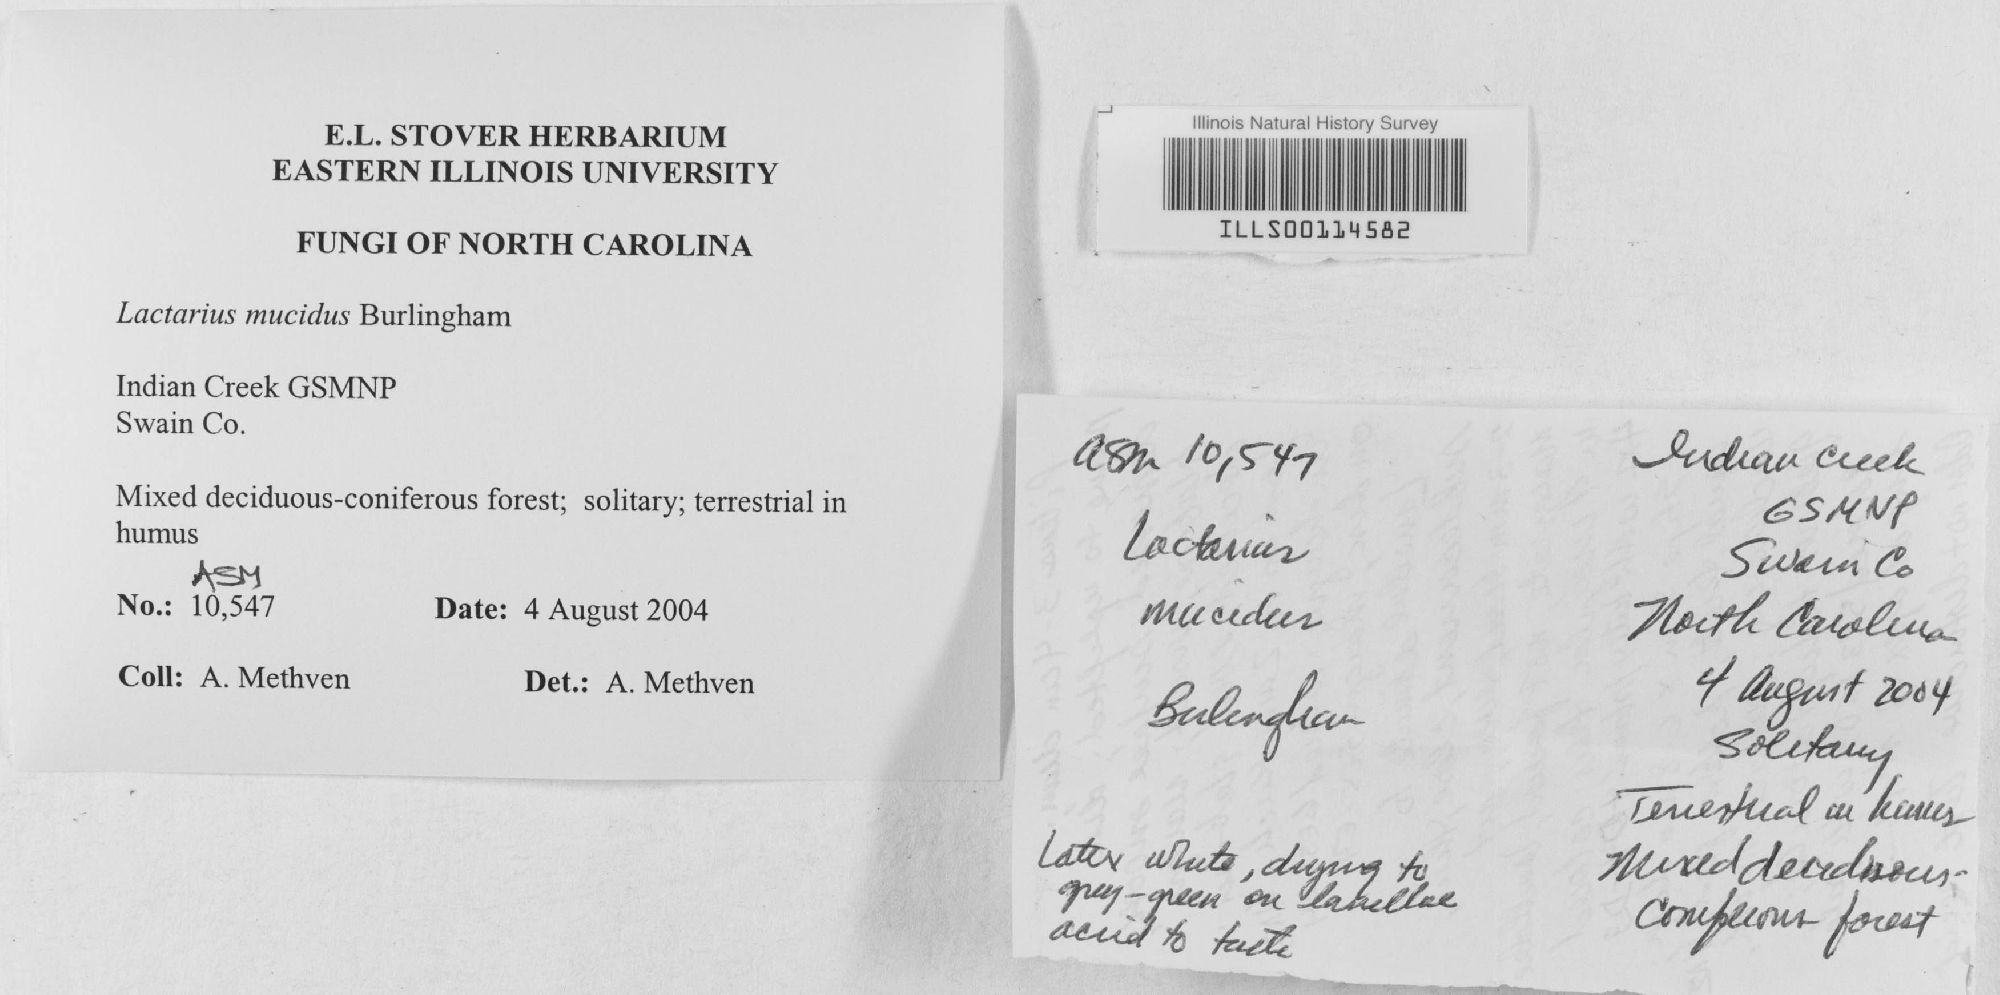 E.L. STOVER HERBARIUM
EASTERN ILLINOIS UNIVERSITY
FUNGI OF NORTH CAROLINA
Lactarius mucidus Burlingham
Indian Creek GSMNP
Swain Co.
Mixed deciduous-coniferous forest; solitary; terrestrial in
humus
ASM
No.: 10,547 Date: 4 August 2004
Coll: A. Methven Det.: A. Methven
Illinois Natural History Survey
ILLS00114582
ASM 10,547
Lactarius
mucidus
Burlingham
Latex white, drying to
grey-green on lamellae
acrid to taste
Indian Creek
GSMNP
Swain Co
North Carolina
4 August 2004
Solitary
Terrestrial in humus
Mixed deciduous-
coniferous forest